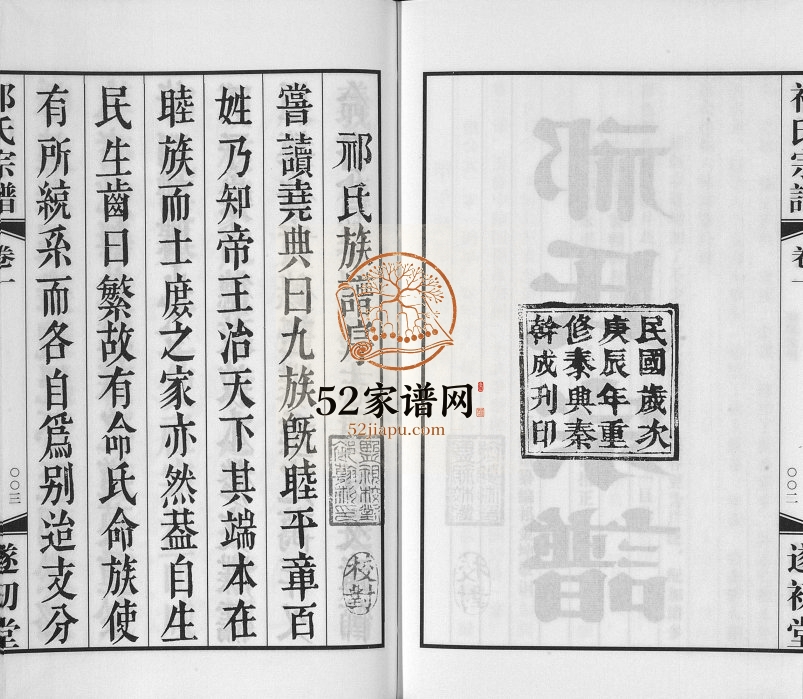 祁氏宗譜
卷一
〇〇二
遂初堂
民國歲次
庚辰年重
修秦典秦
幹成刋印
祁氏族譜序
校對
嘗讀堯典曰九族旣睦平章百
姓乃知帝王治天下其端本在
睦族而士庶之家亦然葢自生
民生齒日繁故有命氏命族使
有所統系而各自爲别迨支分
祁氏宗譜
卷一
〇〇三
遂初堂
52家谱网
52jiapu.com